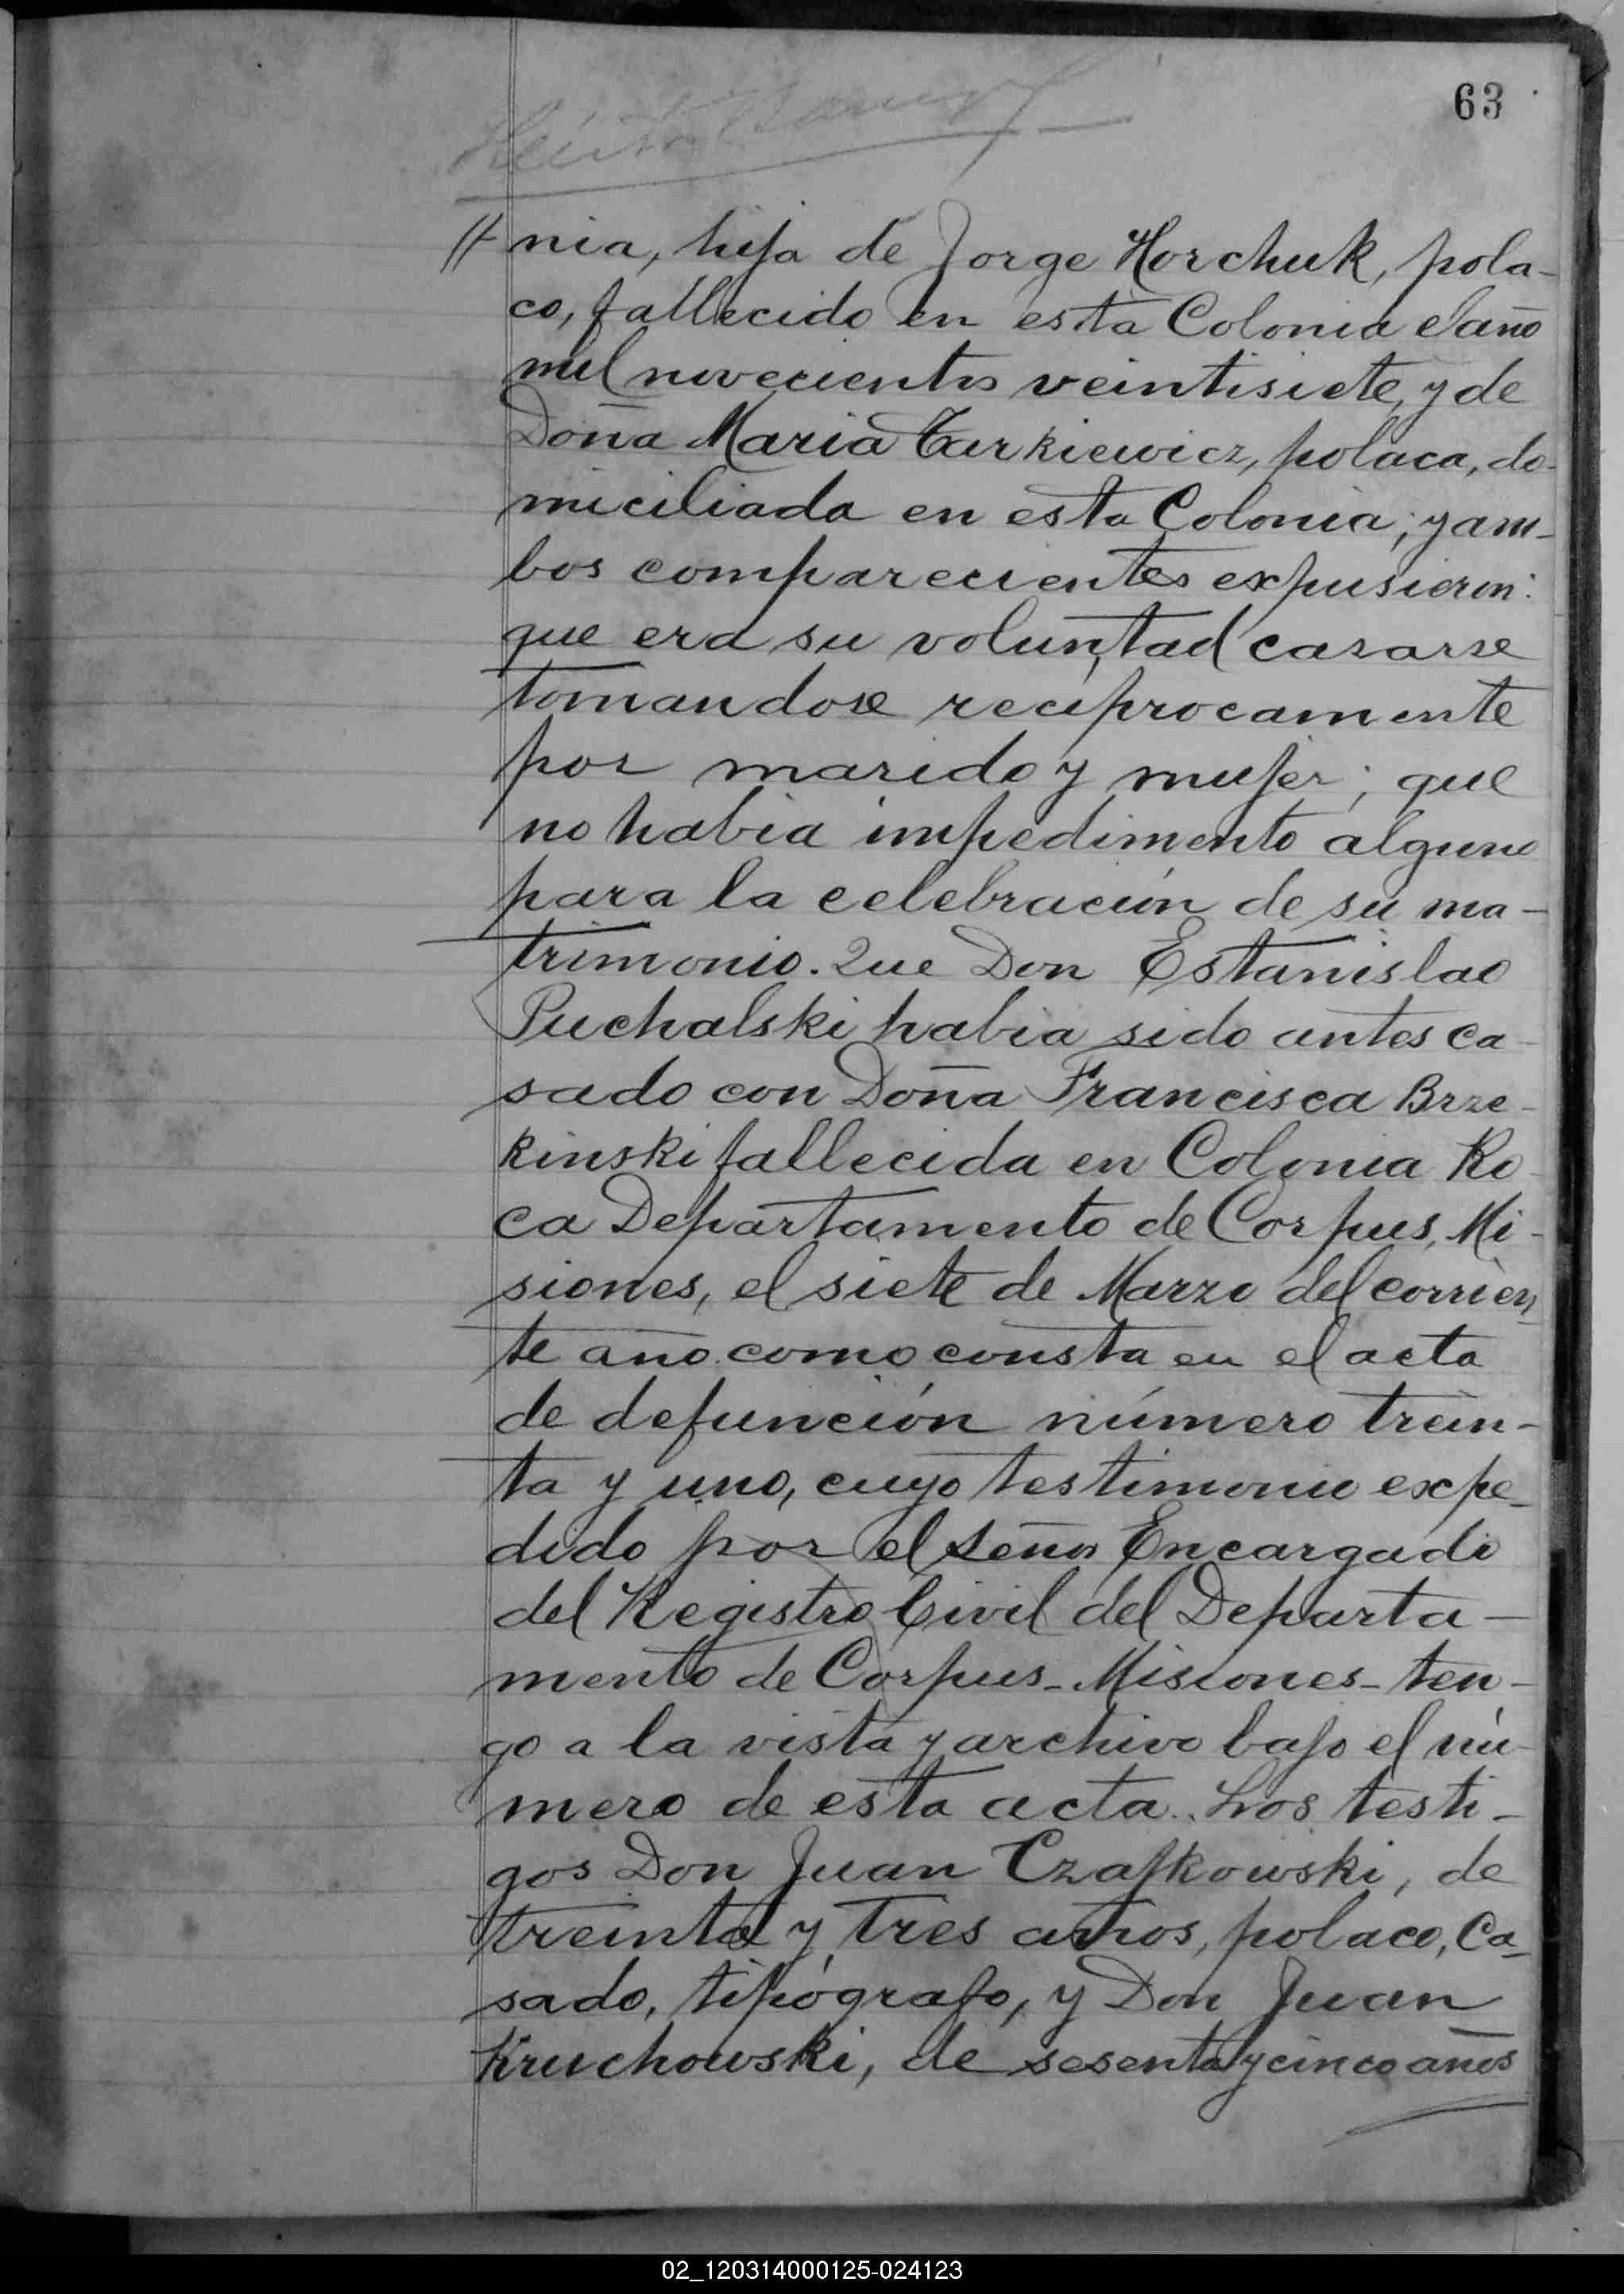 63
// nia, hija de Jorge Horchuk, pola-
co, fallecido en esta Colonia el año
mil novecientos veintisiete, y de
Doña Maria Tarkiewicz, polaca, do-
miciliada en esta Colonia; y am-
bos comparecientes expusieron:
que era su voluntad casarse
tomandose reciprocamente
por marido y mujer; que
no habia impedimento alguno
para la celebración de su ma-
trimonio. Que Don Estanislao
Puchalski habia sido antes ca-
sado con Doña Francisca Brze-
kinski fallecida en Colonia Ro-
ca Departamento de Corpus, Mi-
siones, el siete de Marzo del corrien-
te año como consta en el acta
de defunción número trein-
ta y uno, cuyo testimonio expe-
dido por el señor Encargado
del Registro Civil del Departa-
mento de Corpus - Misiones - ten-
go a la vista y archivo bajo el nú-
mero de esta acta. Los testi-
gos Don Juan Czajkowski, de
treinta y tres años, polaco, ca-
sado, tipógrafo, y Don Juan
Kruchowski, de sesenta y cinco años
02_120314000125-024123